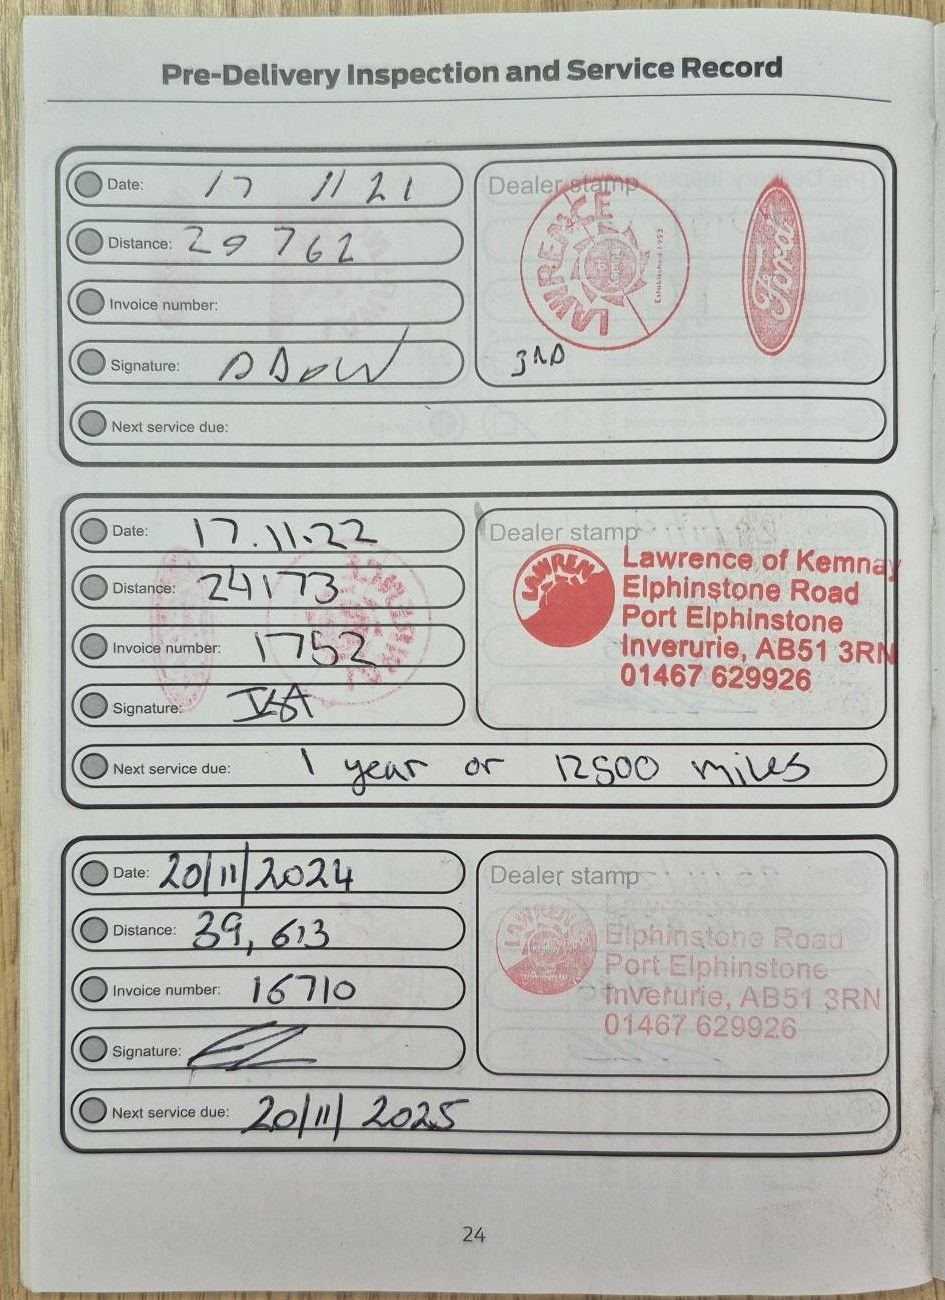 Pre-Delivery Inspection and Service Record
Date: 17 11 21
Distance: 20 762
Invoice number:
Signature:
Next service due:
Dealer stamp
LAWRENCE
Established 1952
Ford
3RD
Date: 17.11.22
Distance: 24173
Invoice number: 1752
Signature:
Next service due: 1 year or 12500 miles
Dealer stamp
LAWREN
Lawrence of Kemnay
Elphinstone Road
Port Elphinstone
Inverurie, AB51 3RN
01467 629926
Date: 20/11/2024
Distance: 39,613
Invoice number: 16710
Signature:
Next service due: 20/11/2025
Dealer stamp
LAWRENCE
Elphinstone Road
Port Elphinstone
Inverurie, AB51 3RN
01467 629926
24